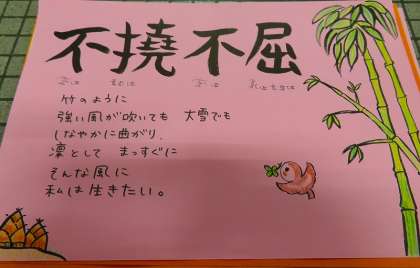 不撓不屈
竹のように
強い風が吹いても 大雪でも
しなやかに曲がり、
凛として まっすぐに
そんな風に
私は生きたい。